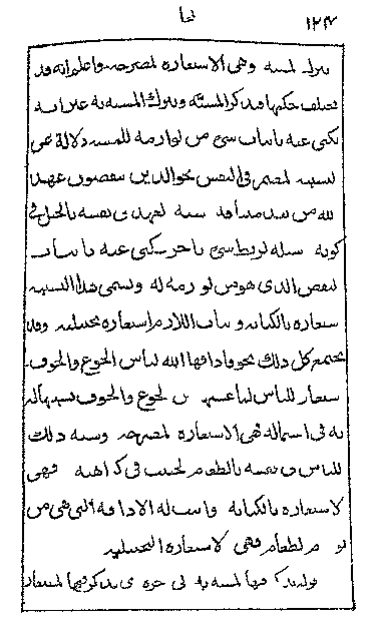 ١٢٤
وهى الاستعارة لمصرحه واعلم انه قد
حكمها فيذكر المشبه ويترك المشبه به غير انه
يكنى عنه باثبات شىء من لوازمه للمشبه دلالة على
لتشبيه لمضمر فى النفس نحو الذين ينقضون عهد
لله من بعد ميثاقه شبه لعهد فى نفسه بالحبل فى
كونه لربط شىء باخر يكنى عنه باثبات
لنقض الذى هو من لوازمه له ويسمى هذا التشبيه
ستعارة بالكناية و اثبات اللازم استعارة تخييلية وقد
يجتمع كل ذلك نحو فاذاقها الله لباس الجوع والخوف
ستعار للباس لما من لجوع والخوف تشبيها له
به فى اشتماله فهى الاستعارة لمصرحه وشبه ذلك
للباس فى نفسه بالطعام فى كراهية فهى
لاستعارة بالكناية واثبت له الاذاقة التى هى من
لو م لطعام فهى لاستعارة التخييلية
فيها لمشبه به فيها لمستعار